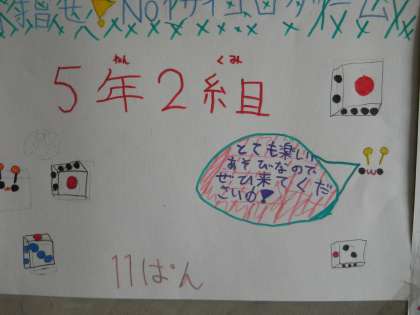 No1サイコロゲーム
5年2組
ねん くみ
とても楽しい
あそびなので
ぜひ来てくだ
さいの
11ぱん